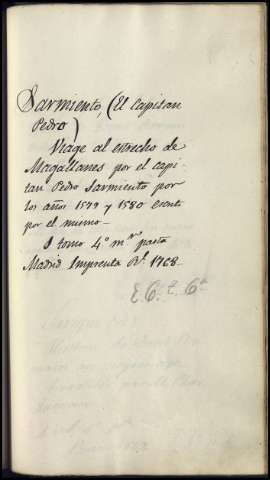 Sarmiento, (El Capitan
Pedro)
Viage al estrecho de
Magallanes por el capi-
tan Pedro Sarmiento por
los años 1579 y 1580 escrito
por el mismo-
1 tomo 4º mʳ pasta
Madrid Imprenta Rˡ 1768.
E. 6ª t. 6ª